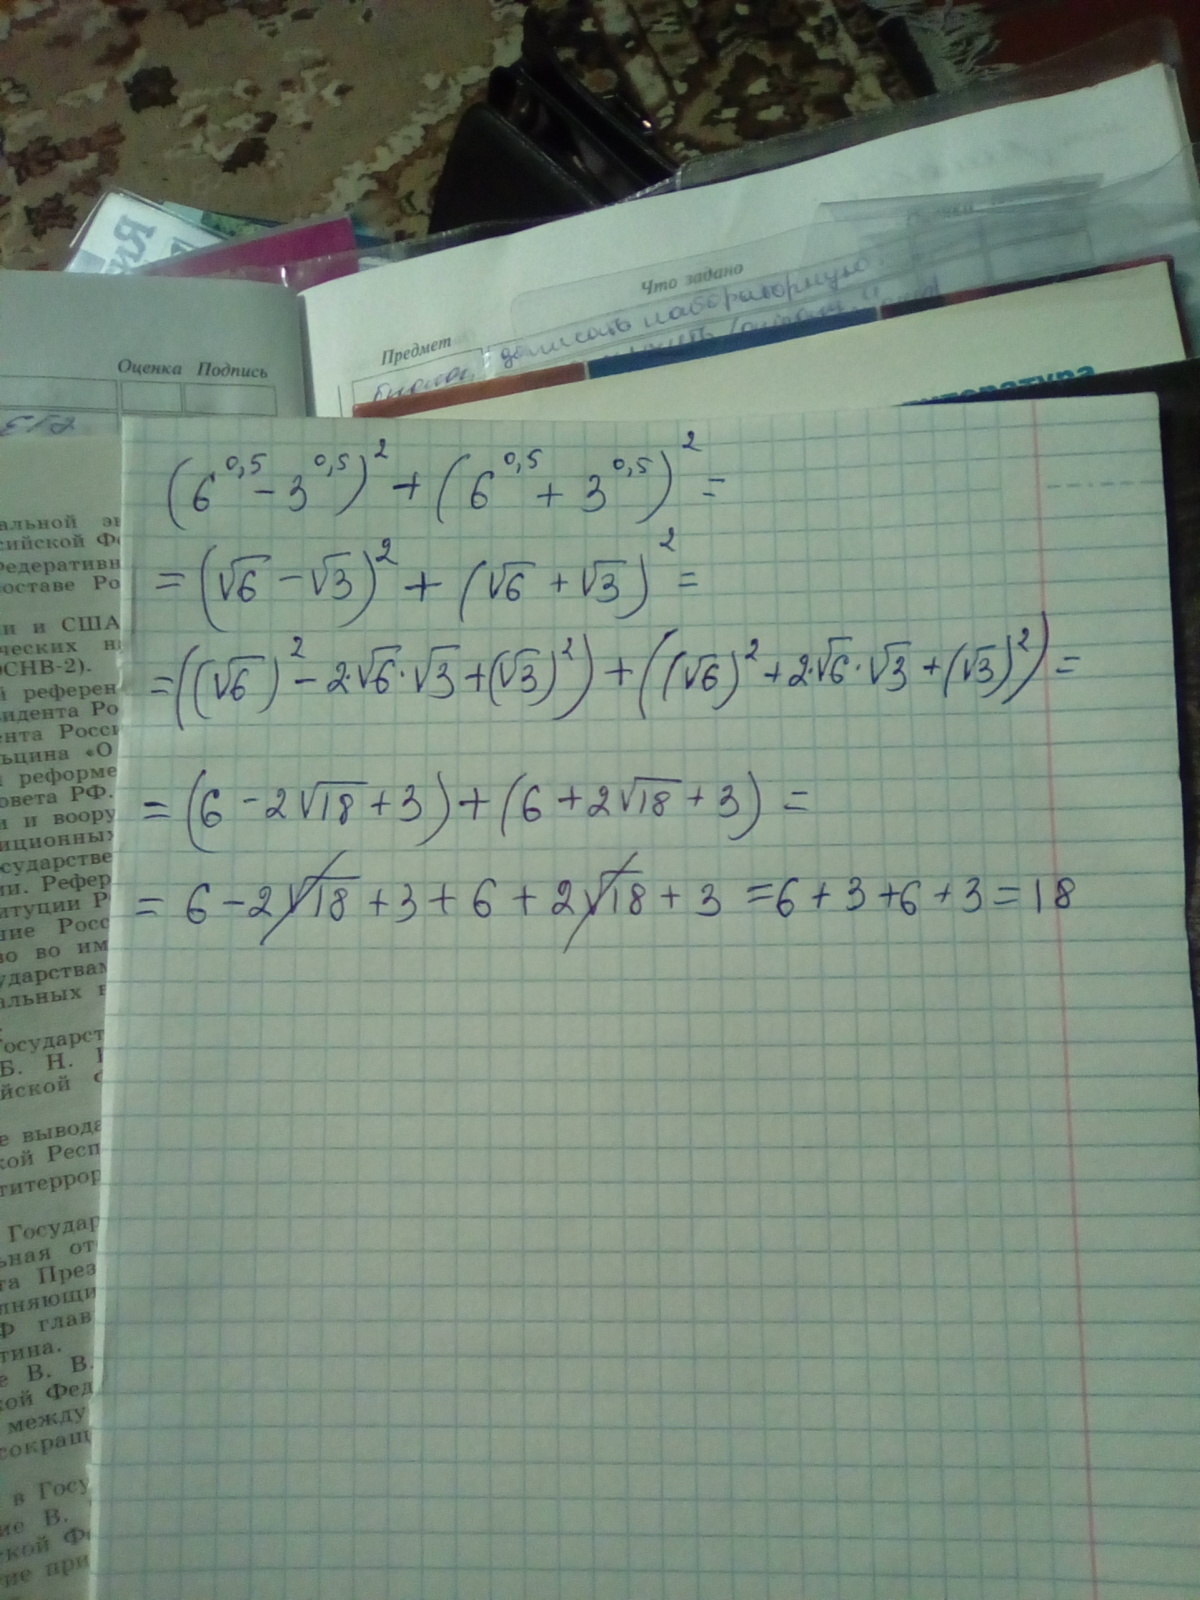 Что задано
Предмет
дописать лабораторную
Оценка Подпись
(6^0,5 - 3^0,5)^2 + (6^0,5 + 3^0,5)^2 =
= (√6 - √3)^2 + (√6 + √3)^2 =
= ((√6)^2 - 2·√6·√3 + (√3)^2) + ((√6)^2 + 2·√6·√3 + (√3)^2) =
= (6 - 2√18 + 3) + (6 + 2√18 + 3) =
= 6 - 2√18 + 3 + 6 + 2√18 + 3 = 6 + 3 + 6 + 3 = 18
альной
сийской
едеративн
оставе Ро
и и США
ческих
ОСНВ-2).
й референ
зидента Ро
ента Росси
ьцина «О
и реформе
овета РФ.
и и воору
иционных
сударстве
ии. Рефер
итуции
ие Росс
во во им
ударствам
альных
Государст
Б. Н.
йской
е вывода
кой Респ
титеррор
Государ
ьная от
та През
лняющи
Ф глав
тина.
е В. В.
кой Фед
между
сокращ
в Госу
ие В.
ской
ие при